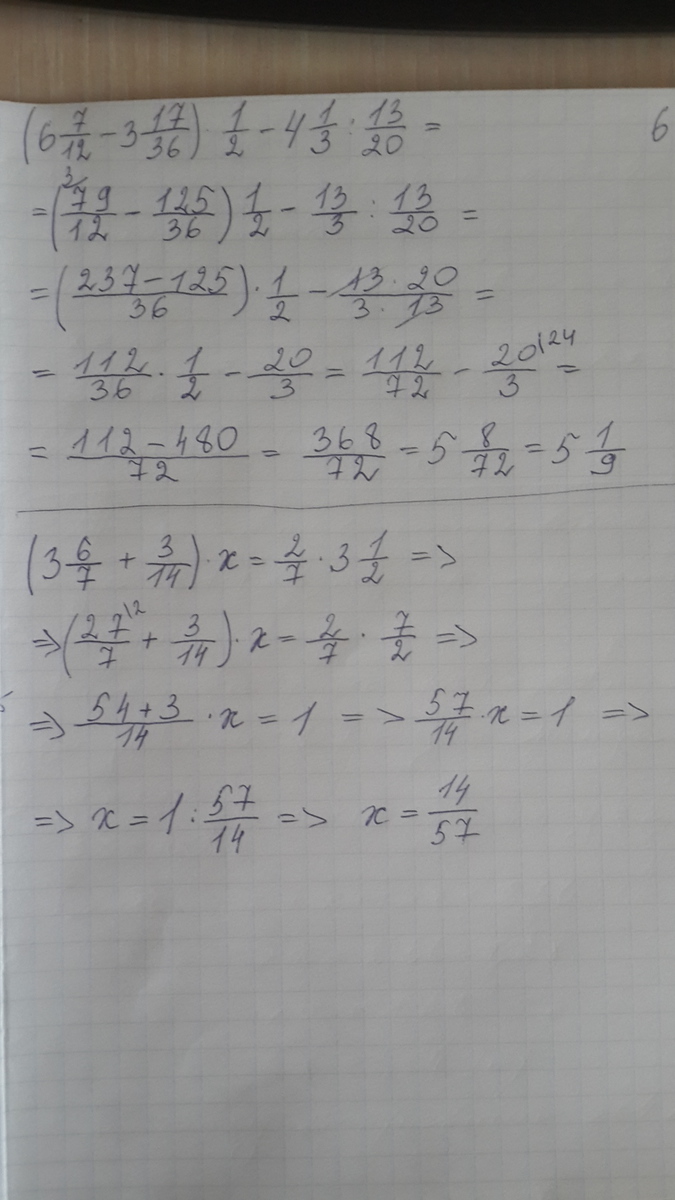 (6 7/12 - 3 17/36) · 1/2 - 4 1/3 : 13/20 = 6
= (79/12 3/ - 125/36) 1/2 - 13/3 : 13/20 =
= (237-125/36) · 1/2 - 13 · 20/3 · 13 =
= 112/36 · 1/2 - 20/3 = 112/72 - 20/3 \24 =
= 112-480/72 = 368/72 = 5 8/72 = 5 1/9
(3 6/7 + 3/14) · x = 2/7 · 3 1/2 =>
=> (27/7 \2 + 3/14) · x = 2/7 · 7/2 =>
=> 54+3/14 · x = 1 => 57/14 · x = 1 =>
=> x = 1 : 57/14 => x = 14/57